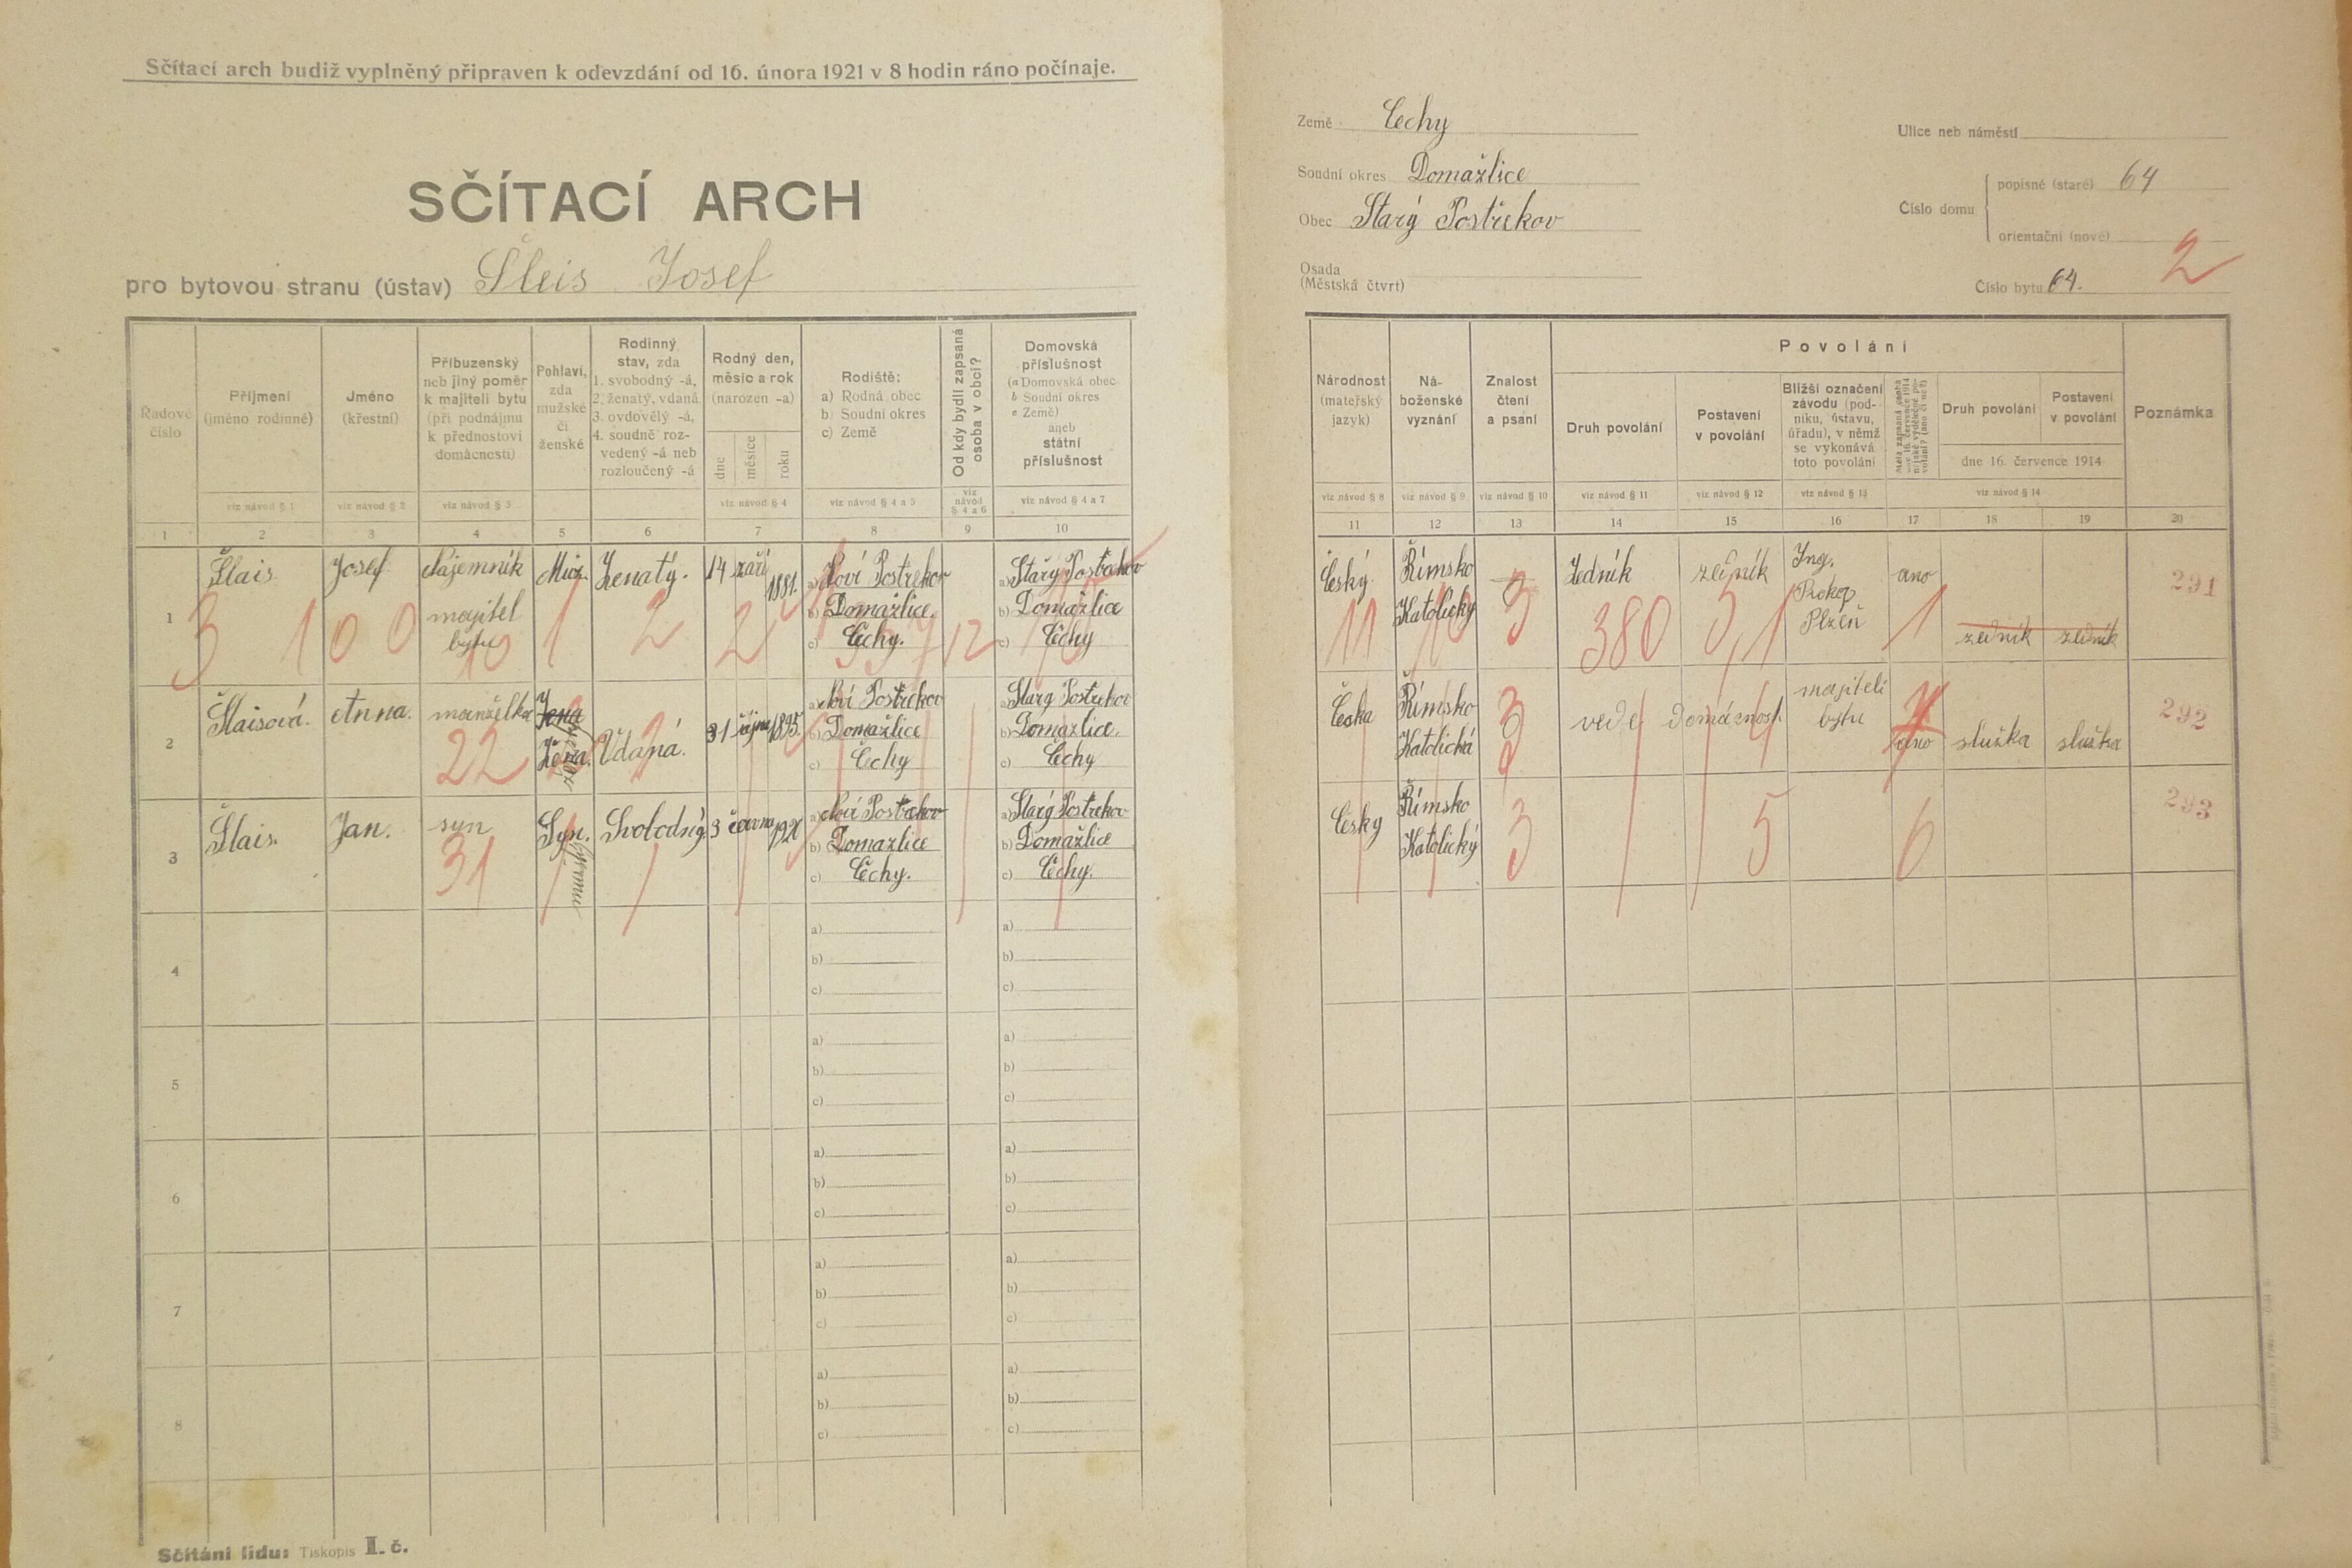 Sčítací arch budiž vyplněný připraven k odevzdání od 16. února 1921 v 8 hodin ráno počínaje.
SČÍTACÍ ARCH
pro bytovou stranu (ústav) Šleis Josef
Země Čechy
Soudní okres Domažlice
Obec Starý Postřekov
Osada
(Městská čtvrť)
Ulice neb náměstí
Číslo domu
popisné (staré) 64
orientační (nové)
2
Číslo bytu 64.
Řadové číslo
Příjmení
(jméno rodinné)
viz návod § 1
Jméno
(křestní)
viz návod § 2
Příbuzenský
neb jiný poměr
k majiteli bytu
(při podnájmu
k přednostovi
domácnosti)
viz návod § 3
Pohlaví,
zda
mužské
či
ženské
Rodinný
stav, zda
1. svobodný -á,
2. ženatý, vdaná
3. ovdovělý -á,
4. soudně roz-
vedený -á neb
rozloučený -á
Rodný den,
měsíc a rok
(narozen -a)
dne
měsíce
roku
viz návod § 4
Rodiště:
a) Rodná obec
b) Soudní okres
c) Země
viz návod § 4 a 5
Od kdy bydlí zapsaná
osoba v obci?
viz
návod
§ 4 a 6
Domovská
příslušnost
(a Domovská obec
b Soudní okres
c Země)
aneb
státní
příslušnost
viz návod § 4 a 7
Národnost
(mateřský
jazyk)
viz návod § 8
Ná-
boženské
vyznání
viz návod § 9
Znalost
čtení
a psaní
viz návod § 10
Povolání
Druh povolání
viz návod § 11
Postavení
v povolání
viz návod § 12
Bližší označení
závodu (pod-
niku, ústavu,
úřadu), v němž
se vykonává
toto povolání
viz návod § 13
Měla zapsaná osoba
dne 16. července 1914
nějaké výdělečné po-
volání? (ano či ne?)
Druh povolání
Postavení
v povolání
dne 16. července 1914
viz návod § 14
Poznámka
1 2 3 4 5 6 7 8 9 10
11 12 13 14 15 16 17 18 19 20
1 Šlais Josef Nájemník
majitel
bytu
Ženatý. 14 září 1881.
a) Noví Postřekov
b) Domažlice.
c) Čechy.
a) Starý Postřekov
b) Domažlice
c) Čechy
3 1 0 0 10 1 2 2 12
Český. Římsko
Katolický
Zedník zedník Ing.
Prokop
Plzeň
ano
zedník zedník
11 10 3 380 1
291
2 Šlaisová. Anna. manželka Žena
Žena. Vdaná. 31 října 1895.
22
a) Noví Postřekov
b) Domažlice
c) Čechy
a) Starý Postřekov
b) Domažlice.
c) Čechy
Česka Římsko
Katolická
3
vede domácnost majiteli
bytu
ano služka služka
292
3 Šlais. Jan. syn Syn. Svobodný 3 června
31
a) Noví Postřekov
b) Domažlice
c) Čechy.
a) Starý Postřekov
b) Domažlice
c) Čechy.
Český Římsko
Katolický
3 5 6
293
4 a) a)
b) b)
c) c)
5 a) a)
b) b)
c) c)
6 a) a)
b) b)
c) c)
7 a) a)
b) b)
c) c)
8 a) a)
b) b)
c) c)
Sčítání lidu: Tiskopis I. č.